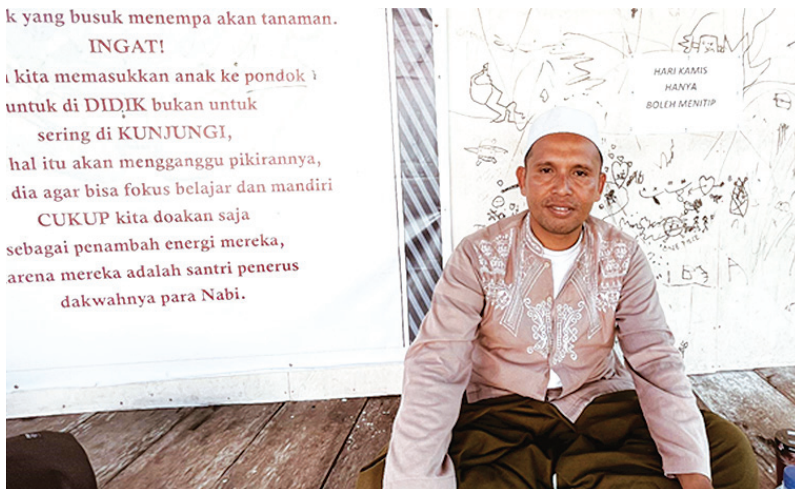 k yang busuk menempa akan tanaman.
INGAT!
kita memasukkan anak ke pondok
untuk di DIDIK bukan untuk
sering di KUNJUNGI,
hal itu akan mengganggu pikirannya,
dia agar bisa fokus belajar dan mandiri
CUKUP kita doakan saja
sebagai penambah energi mereka,
arena mereka adalah santri penerus
dakwahnya para Nabi.
HARI KAMIS
HANYA
BOLEH MENITIP